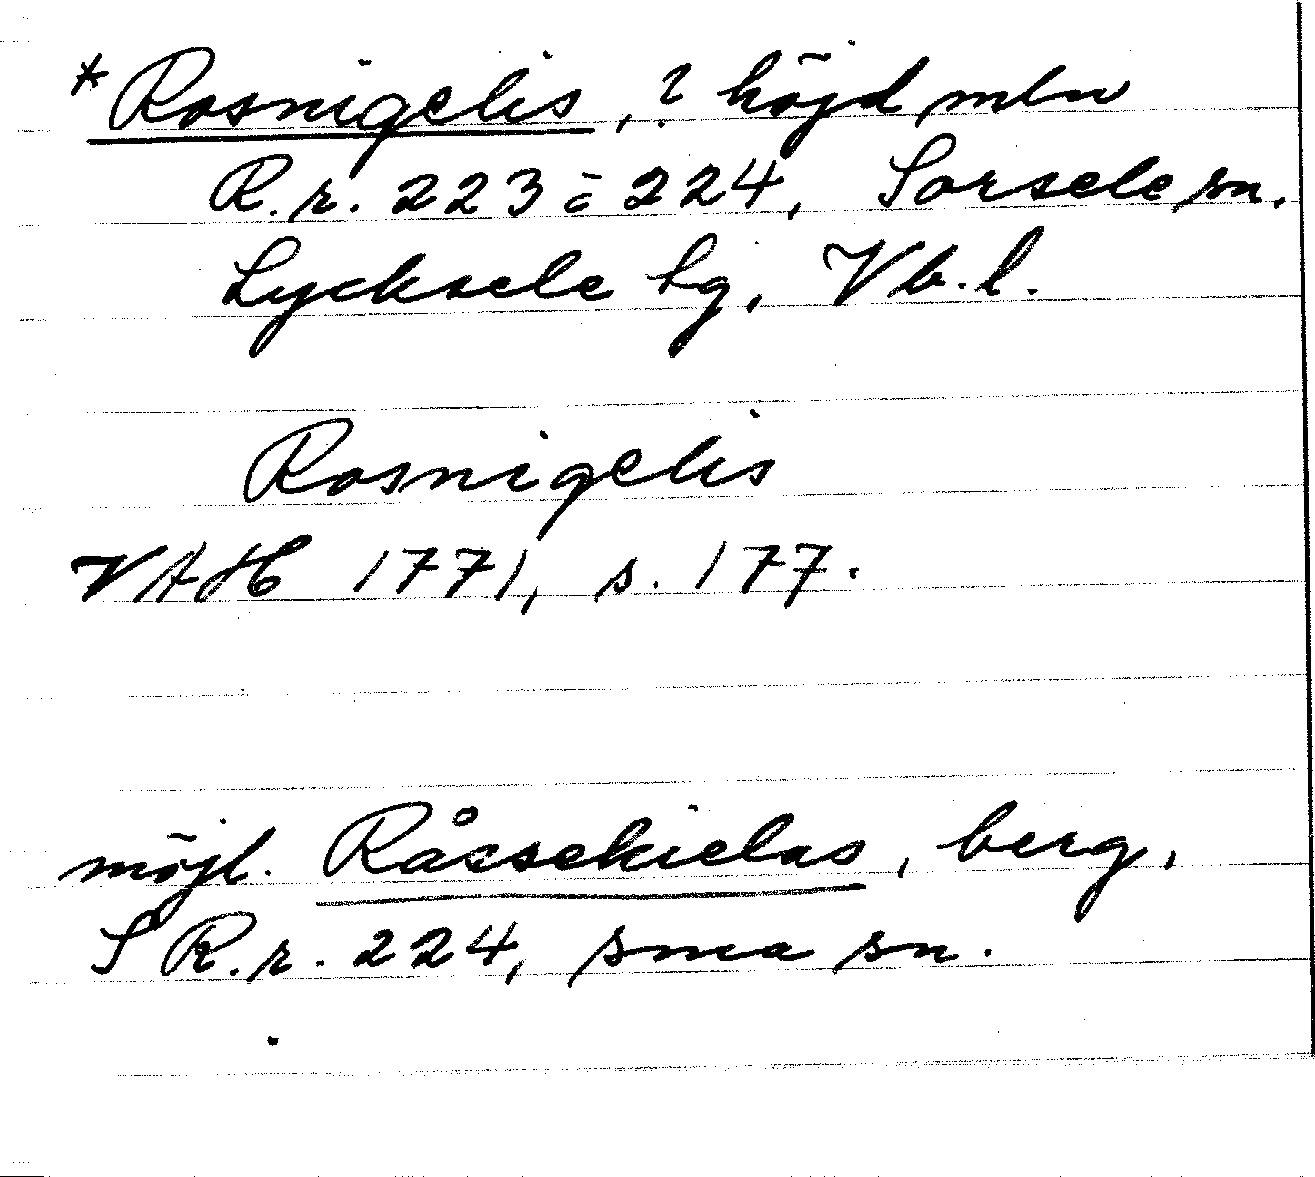 *Rosnigelis, ? höjd mln
R.r. 223 o 224, Sorsele sn.
Lycksele lg, Vb.l.
Rosnigelis
VAH 1771, s. 177.
möjl. Råssekielas, berg,
S R.r. 224, sma sn.